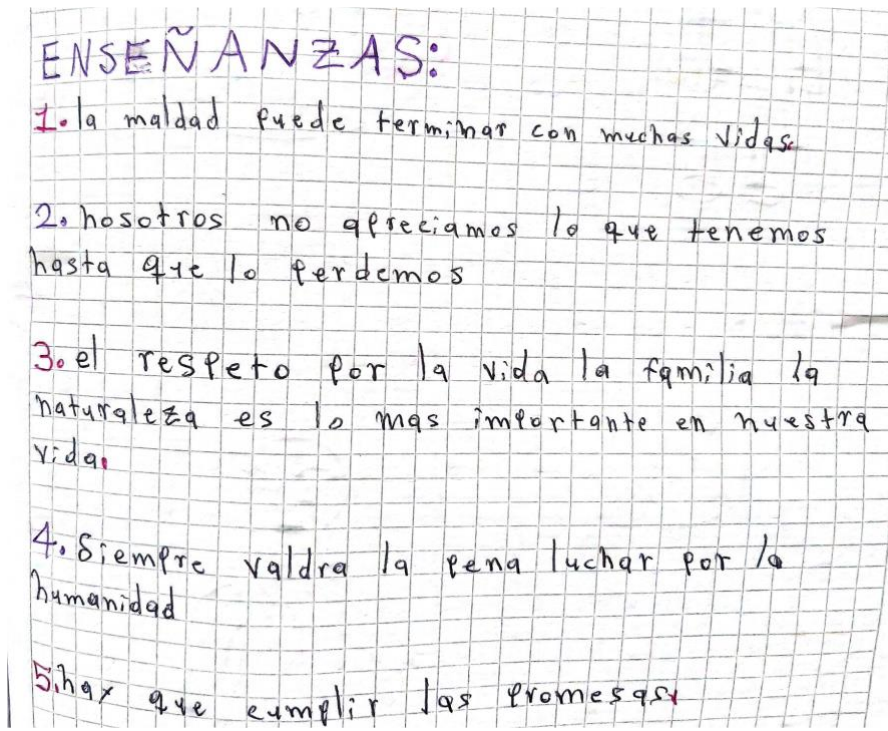 ENSEÑANZAS:
1. la maldad puede terminar con muchas vidas.
2. nosotros no apreciamos lo que tenemos
hasta que lo perdemos
3. el respeto por la vida la familia la
naturaleza es lo mas importante en nuestra
vida.
4. Siempre valdra la pena luchar por la
humanidad
5. hay que cumplir las promesas.